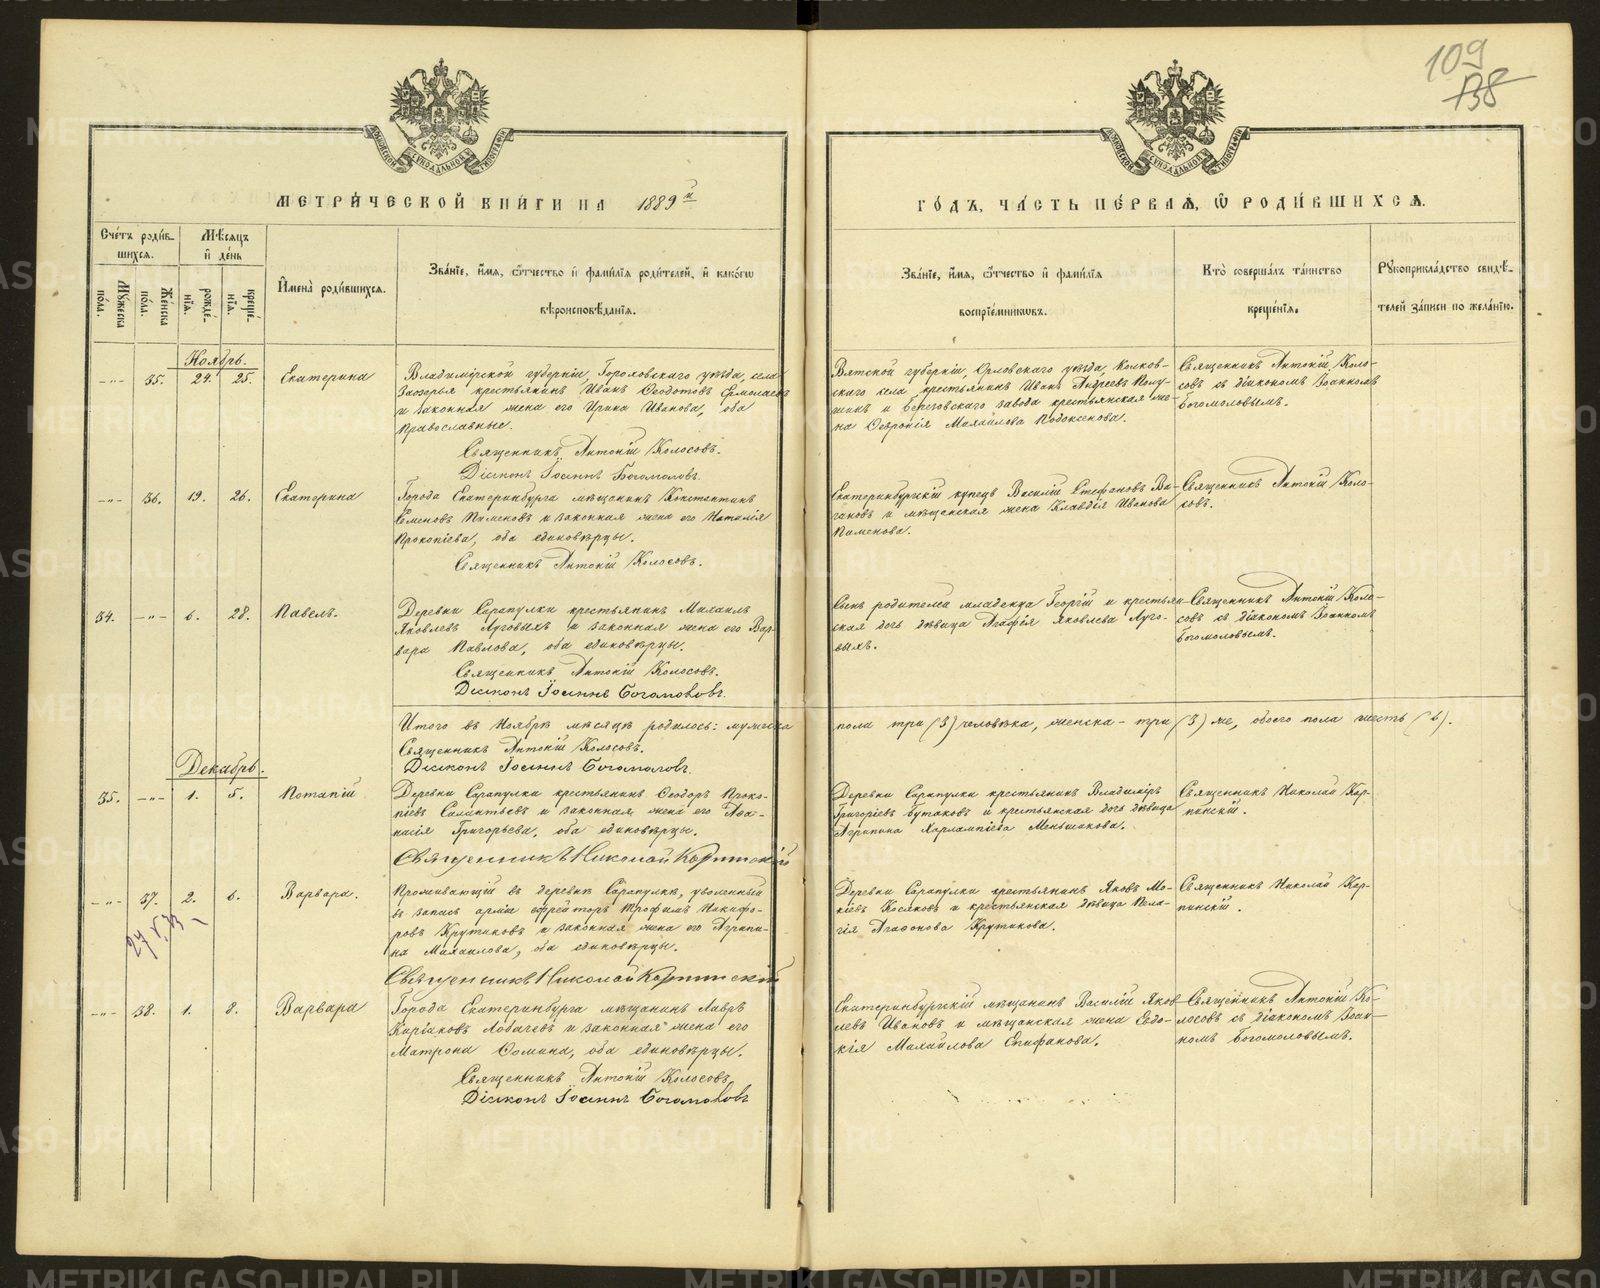 109
138
МЕТРИ́ЧЕСКОЙ КНИ́ГИ НА 1889й
ГО́ДЪ, ЧА́СТЬ ПЕ́РВАЯ, Ѿ РОДИ́ВШИХСЯ.
Сче́тъ роди́в-
шихся.
Му́жеска
по́ла.
Же́нска
по́ла.
Мѣ́сяцъ
и̓ де́нь
рожде́-
нїя.
креще́-
нїя.
И̓мена̀ роди́вшихся.
Зва́нїе, и́мя, ѻ́тчество и̓ фами́лїя роди́телей, и̓ како́гѡ
вѣроисповѣ́данїя.
Зва́нїе, и́мя, ѻ́тчество и̓ фами́лїя
воспрїе́мникѡвъ.
Кто̀ соверша́лъ та́инство
креще́нїя.
Рꙋкоприкла́дство свидѣ́-
телей за́писи по жела́нїю.
Ноябрь.
-"- 35. 24. 25. Екатерина
Владимірской губерніи, Гороховскаго уѣзда, села
Заозерья крестьянинъ Иванъ Ѳеодотовъ Ермолаевъ
и законная жена его Ирина Иванова, оба
православные.
Священникъ Антоній Колосовъ.
Діаконъ Іоаннъ Богомоловъ.
Вятской губерніи, Орловскаго уѣзда,
скаго села крестьянинъ Иванъ Андреевъ
и Березовскаго завода крестьянская же-
на Ѳевронія Михайлова
Священникъ Антоній Коло-
совъ съ діакономъ Іоанномъ
Богомоловымъ.
-"- 36. 19. 26. Екатерина
Города Екатеринбурга мѣщанинъ Константинъ
Семеновъ Пименовъ и законная жена его Наталія
Прокопіева, оба единовѣрцы.
Священникъ Антоній Колосовъ.
Екатеринбургскій купецъ Василій Стефановъ Ва-
гановъ и мѣщанская жена Клавдія Иванова
Пименова.
Священникъ Антоній Коло-
совъ.
34. -"- 6. 28. Павелъ.
Деревни Сарапулки крестьянинъ Михаилъ
Яковлевъ Луговыхъ и законная жена его Вар-
вара Павлова, оба единовѣрцы.
Священникъ Антоній Колосовъ.
Діаконъ Іоаннъ Богомоловъ.
Сынъ родителя младенца Георгій и крестьян-
ская дочь дѣвица Агафія Яковлева Луго-
выхъ.
Священникъ Антоній Коло-
совъ съ діакономъ Іоанномъ
Богомоловымъ.
Итого въ Ноябрѣ мѣсяцѣ родилось: мужеска
пола три (3) человѣка, женска - три (3) же, обоего пола шесть (6).
Священникъ Антоній Колосовъ.
Діаконъ Іоаннъ Богомоловъ.
Декабрь.
35. -"- 1. 5. Потапій
Деревни Сарапулки крестьянинъ Ѳеодоръ Проко-
піевъ и законная жена его Аѳа-
насія Григорьева, оба единовѣрцы.
Священникъ Николай Карпинскій
Деревни Сарапулки крестьянинъ Владиміръ
Григоріевъ Бутаковъ и крестьянская дочь дѣвица
Агрипина Харлампіева Меньшикова.
Священникъ Николай Кар-
пинскій.
-"- 37. 2. 6. Варвара.
Проживающій въ деревнѣ Сарапулкѣ, уволенный
въ запасъ арміи ефрейторъ Трофимъ Никифо-
ровъ Крутиковъ и законная жена его Агрипи-
на Михаилова, оба единовѣрцы.
Священникъ Николай Карпинскій
Деревни Сарапулки крестьянинъ Яковъ Мо-
кіевъ Косяковъ и крестьянская дѣвица Пела-
гія Агафонова Крутикова.
Священникъ Николай Кар-
пинскій.
-"- 38. 1. 8. Варвара
Города Екатеринбурга мѣщанинъ Лавръ
Кирѣаковъ Лобачевъ и законная жена его
Матрона Ѳомина, оба единовѣрцы.
Священникъ Антоній Колосовъ
Діаконъ Іоаннъ Богомоловъ
Екатеринбургскій мѣщанинъ Василій Яков-
левъ Ивановъ и мѣщанская жена Евдо-
кія Михайлова Епифанова.
Священникъ Антоній Ко-
лосовъ съ діакономъ Іоан-
номъ Богомоловымъ.